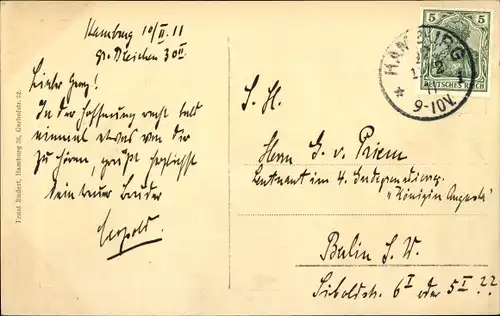 Hamburg 10/II. 11
gr. Bleichen 30 II
Lieber Georg!
In der Hoffnung recht bald
einmal etwas von dir
zu hören, grüßt herzlichst
Dein treuer Bruder
Leopold.
Franz Rudert, Hamburg 36, Gerhofstr. 32.
5 5
DEUTSCHES REICH
HAMBURG
* 1
11
9-10V.
S. H.
Herrn G. v. Priem
Leutnant im 4. Garderegiment
"Königin Augusta"
Berlin S. W.
6 I oder 5 I ??